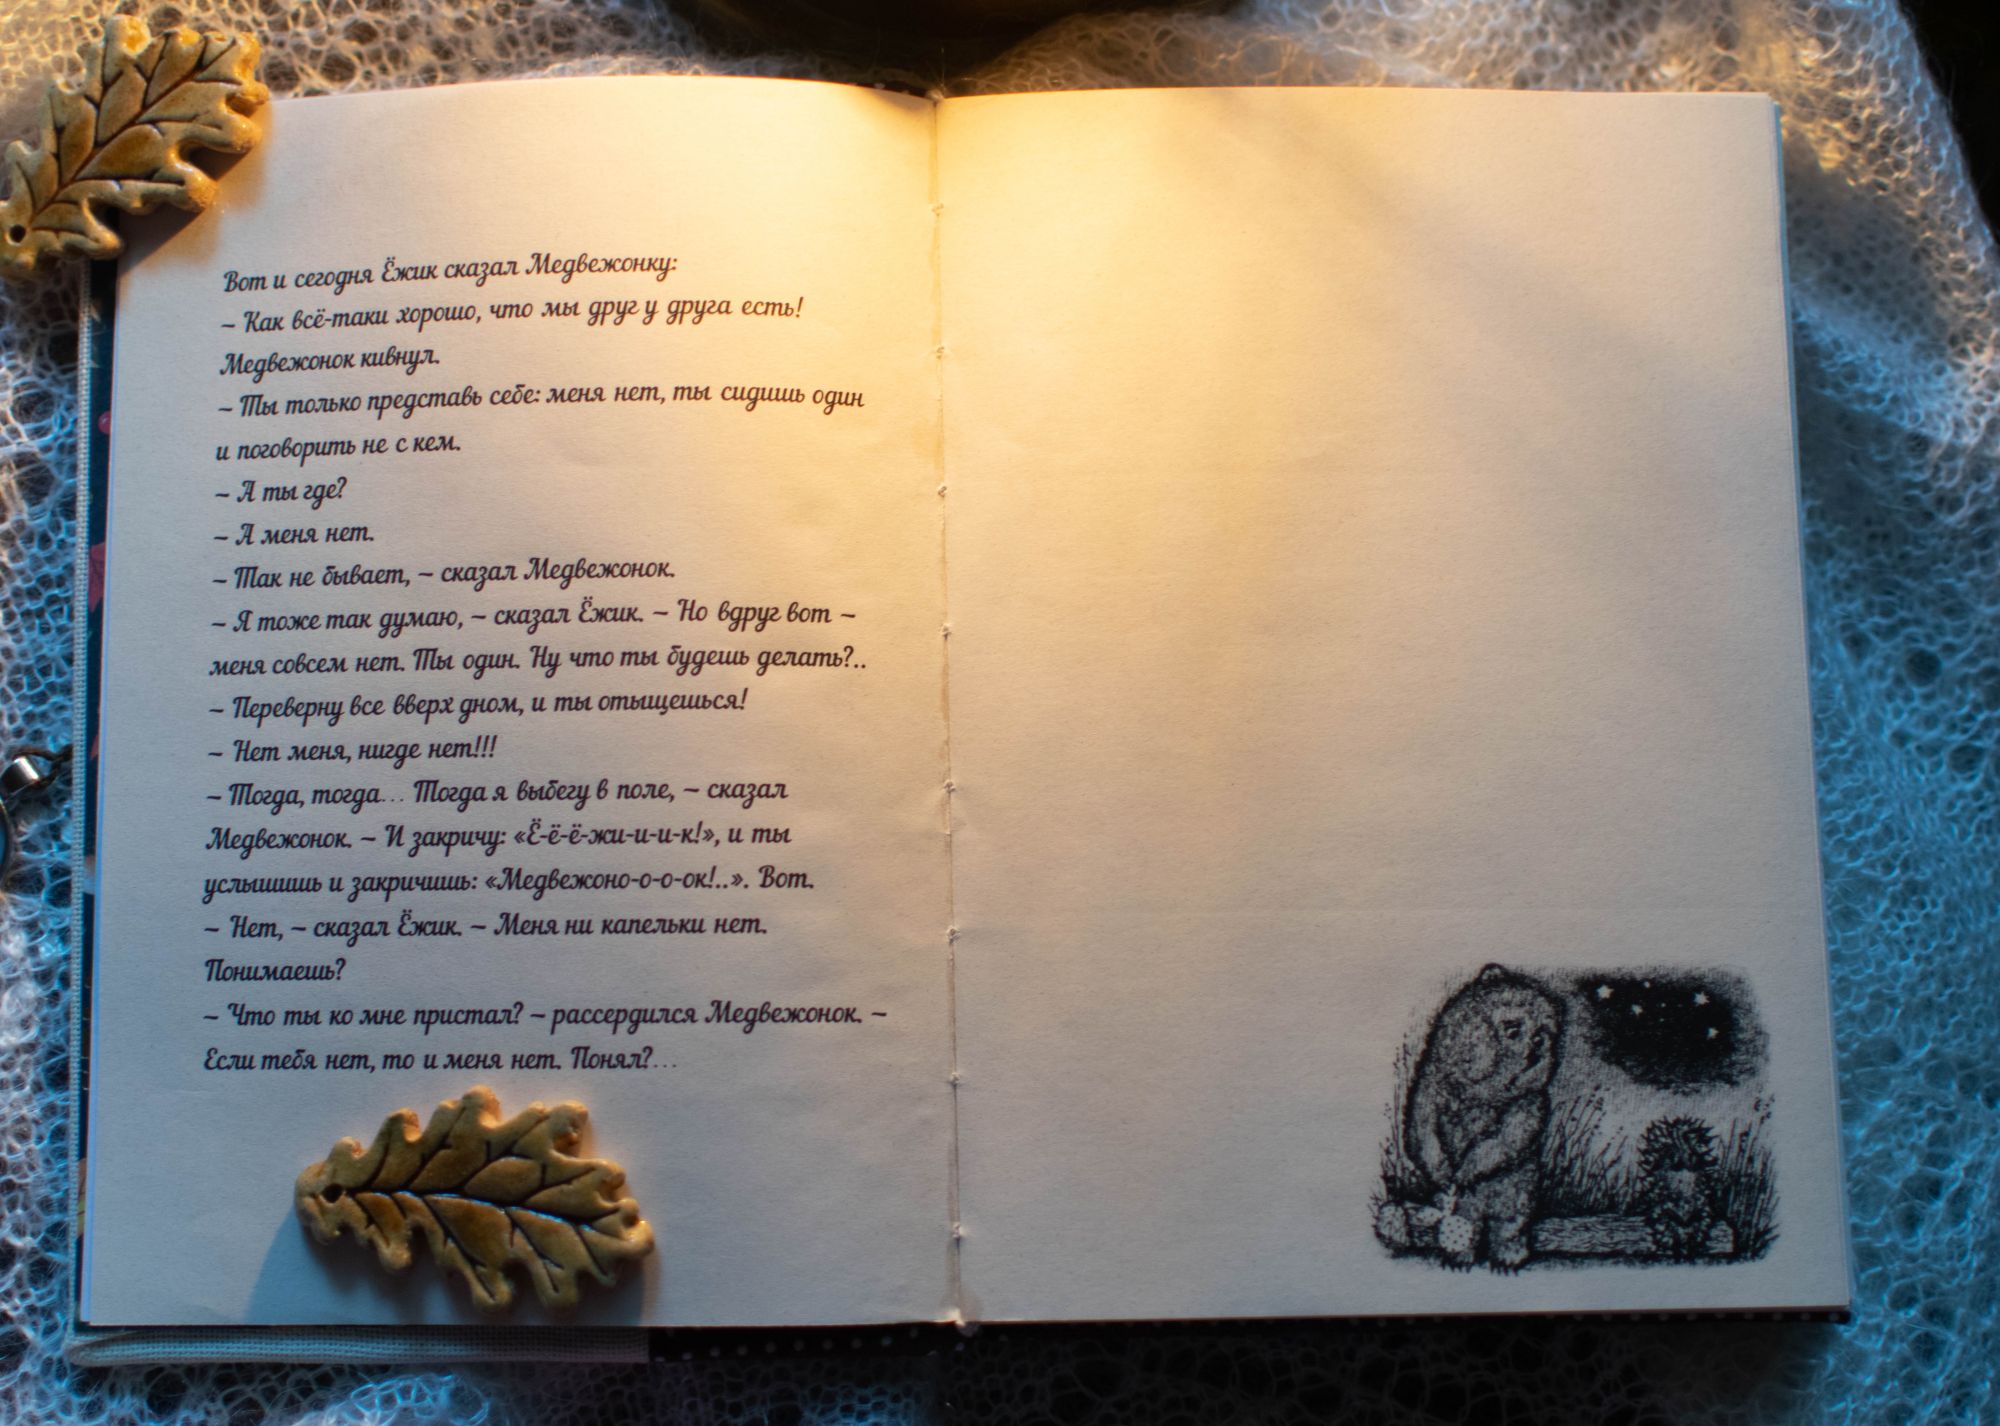 Вот и сегодня Ёжик сказал Медвежонку:
– Как всё-таки хорошо, что мы друг у друга есть!
Медвежонок кивнул.
– Ты только представь себе: меня нет, ты сидишь один
и поговорить не с кем.
– А ты где?
– А меня нет.
– Так не бывает, – сказал Медвежонок.
– Я тоже так думаю, – сказал Ёжик. – Но вдруг вот –
меня совсем нет. Ты один. Ну что ты будешь делать?..
– Переверну все вверх дном, и ты отыщешься!
– Нет меня, нигде нет!!!
– Тогда, тогда... Тогда я выбегу в поле, – сказал
Медвежонок. – И закричу: «Ё-ё-ё-жи-и-и-к!», и ты
услышишь и закричишь: «Медвежоно-о-о-ок!..». Вот.
– Нет, – сказал Ёжик. – Меня ни капельки нет.
Понимаешь?
– Что ты ко мне пристал? – рассердился Медвежонок. –
Если тебя нет, то и меня нет. Понял?...